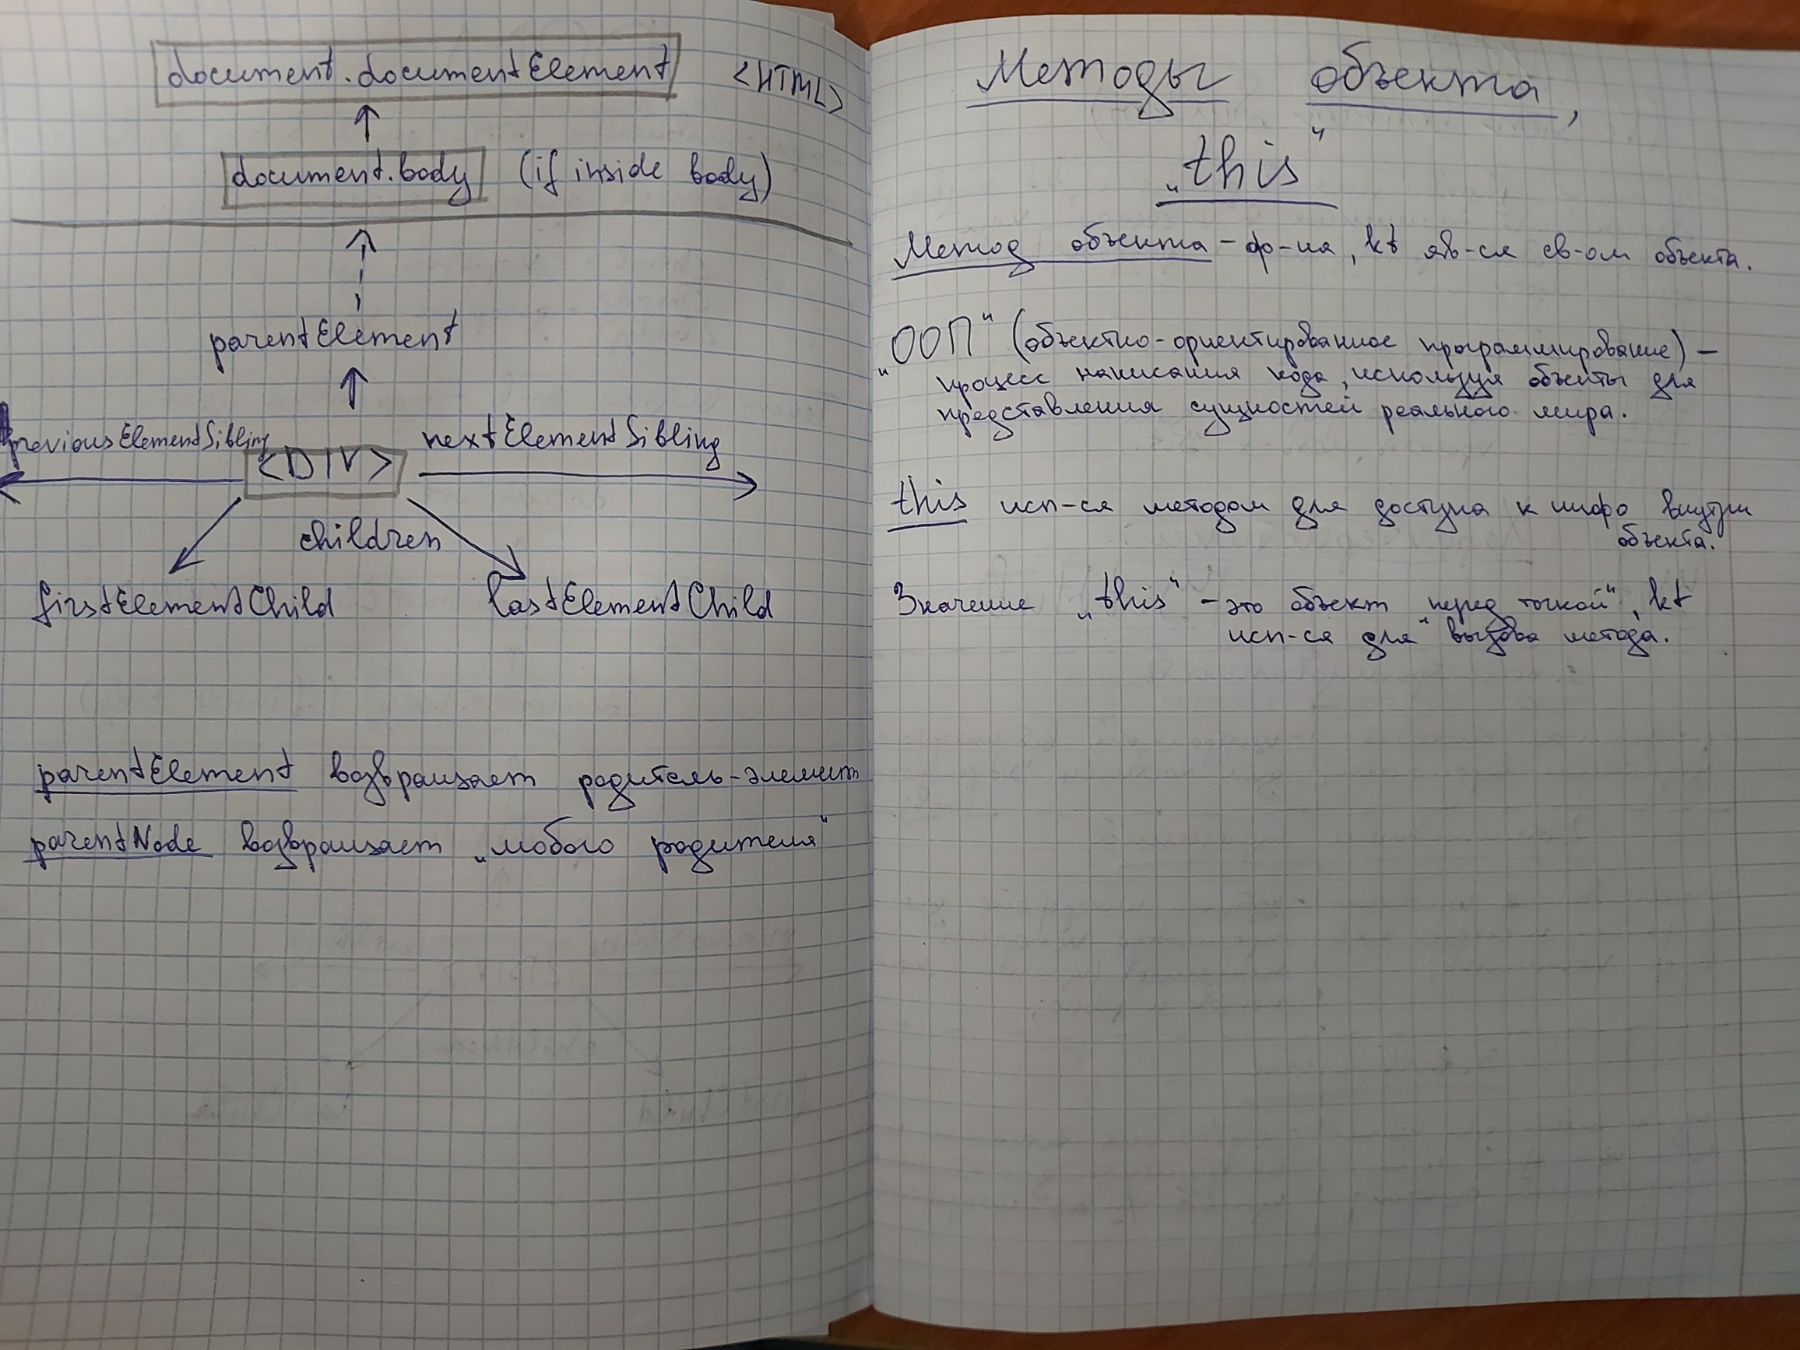 document.documentElement <HTML>
document.body (if inside body)
parentElement
previousElementSibling <DIV> nextElementSibling
children
firstElementChild lastElementChild
parentElement возвращает родитель-элемент
parentNode возвращает „любого родителя“
Методы объекта,
„this“
Метод объекта - ф-ия, kt яв-ся св-ом объекта.
„ООП“ (объектно-ориентированное программирование) –
процесс написания кода, используя объекты для
представления сущностей реального мира.
this исп-ся методом для доступа к инфо внутри
объекта.
Значение „this“ - это объект „перед точкой“, kt
исп-ся для вызова метода.